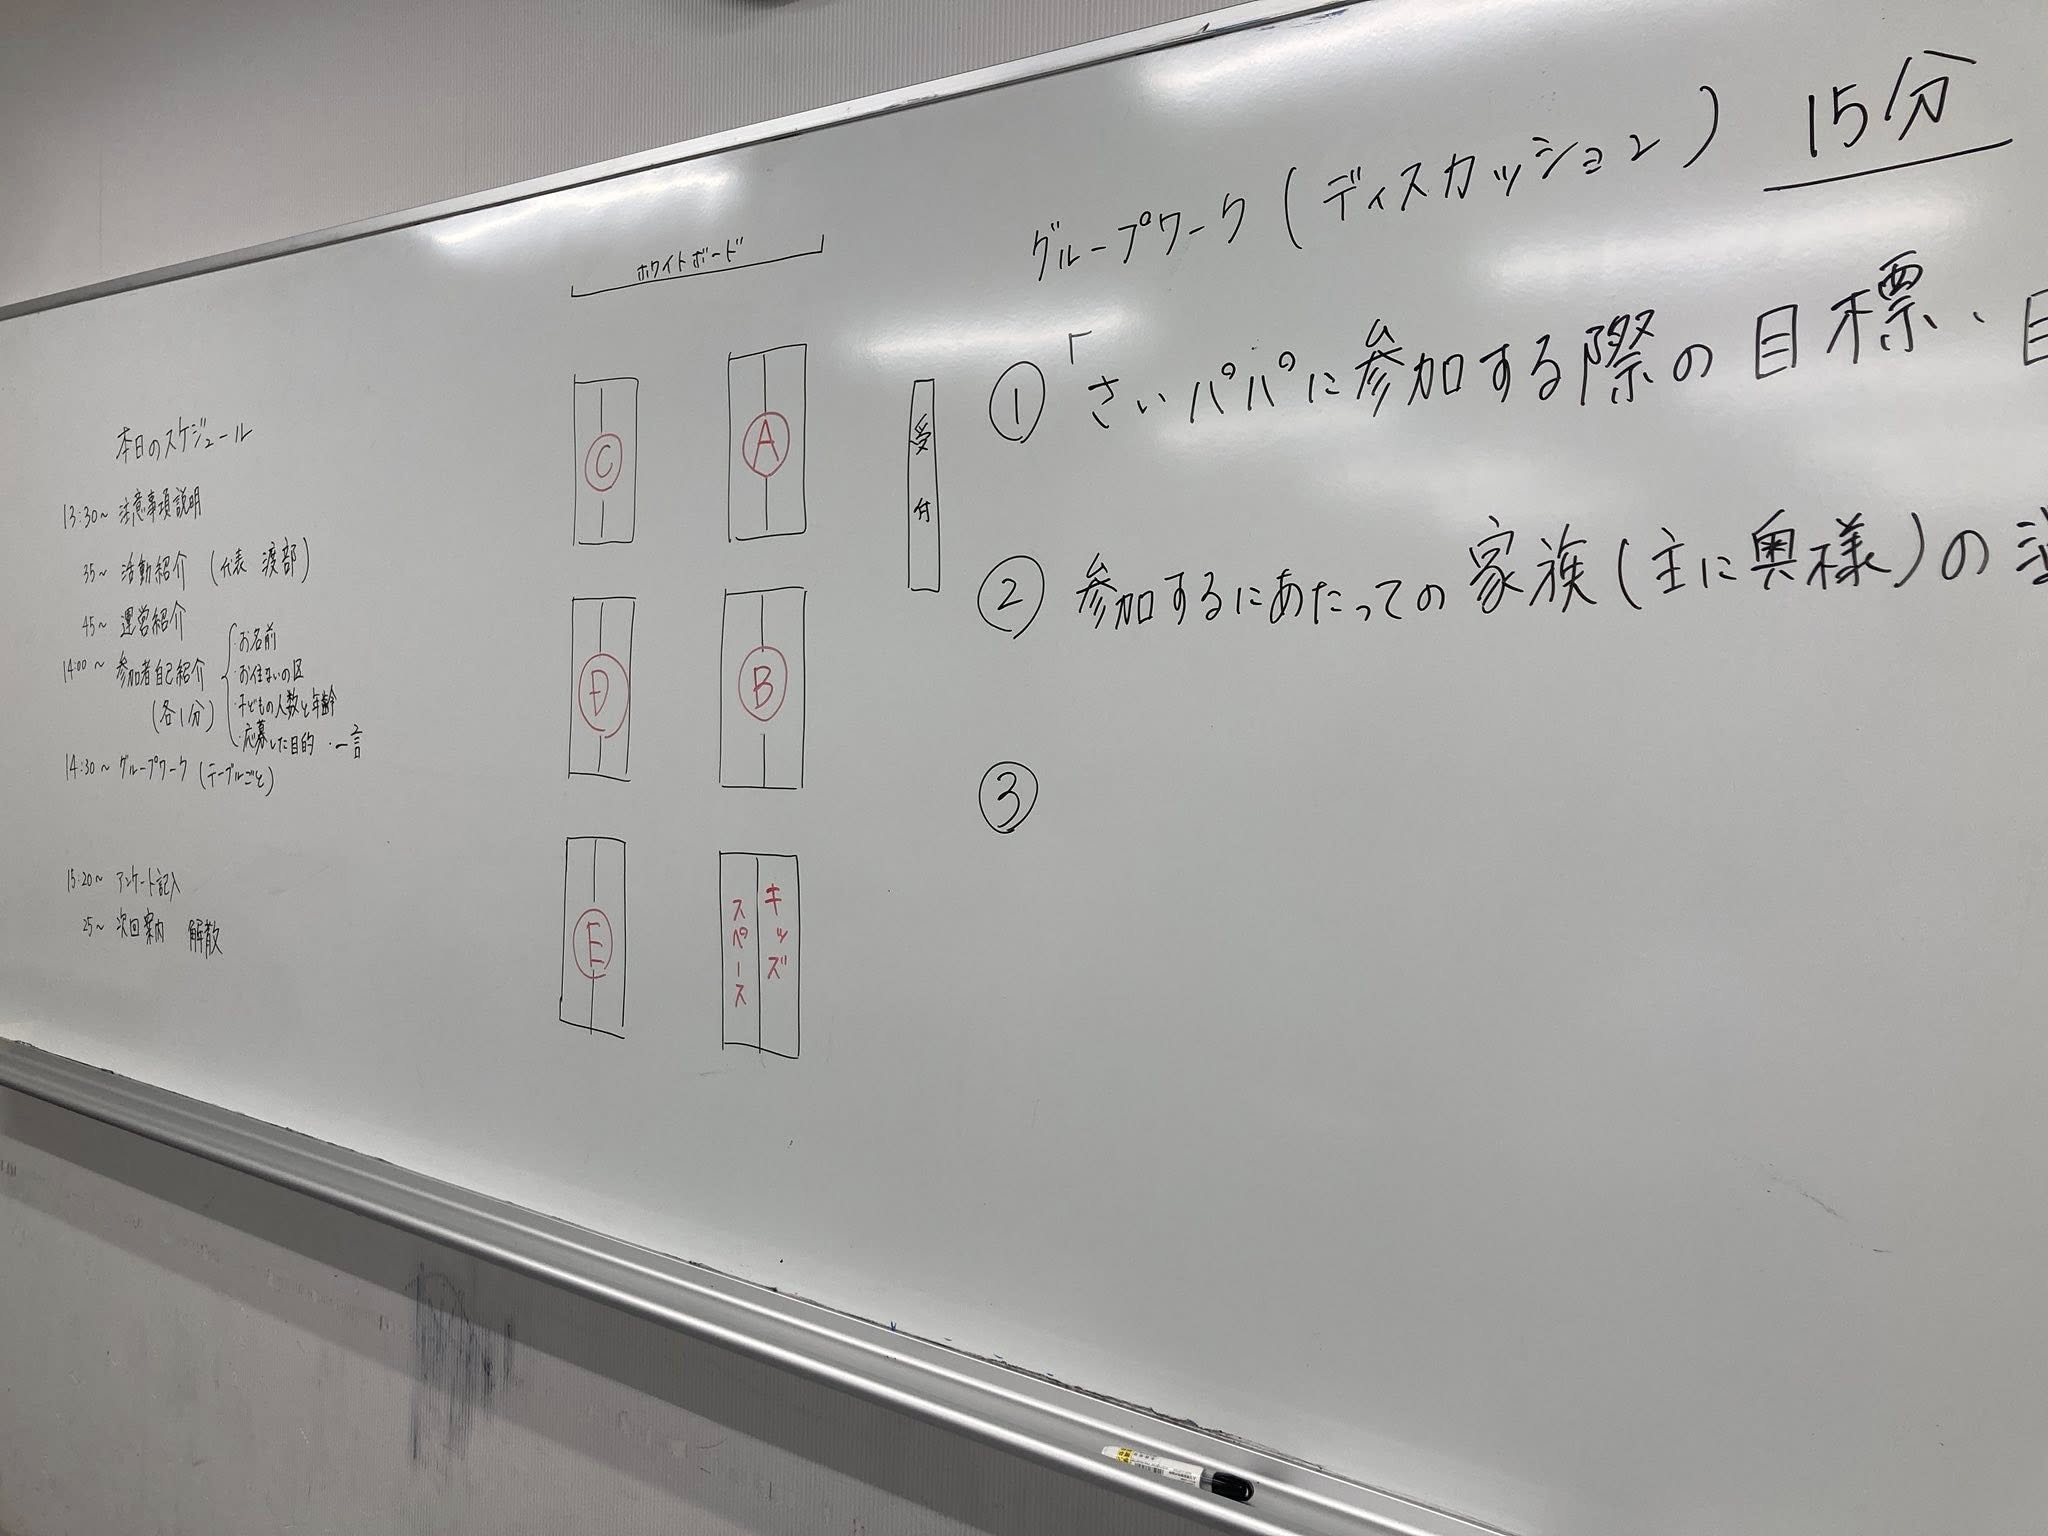 本日のスケジュール
13:30～ 注意事項説明
35～ 活動紹介 (代表 渡部)
45～ 運営紹介
14:00～ 参加者自己紹介
(各1分)
・お名前
・お住まいの区
・子どもの人数と年齢
・応募した目的 ・一言
14:30～ グループワーク (テーブルごと)
15:20～ アンケート記入
25～ 次回案内 解散
ホワイトボード
C
A
受付
D
B
E
キッズ
スペース
グループワーク (ディスカッション) 15分
① 「さいパパに参加する際の目標、目
② 参加するにあたっての家族(主に奥様)の
③